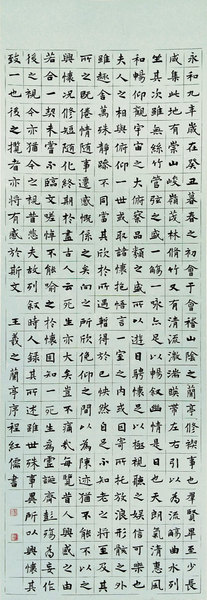 永和九年歲在癸丑暮春之初會于會稽山陰之蘭亭修禊事也羣賢畢至少長
咸集此地有崇山峻嶺茂林脩竹又有清流激湍暎帶左右引以為流觴曲水列
坐其次雖無絲竹管弦之盛一觴一詠亦足以暢敘幽情是日也天朗氣清惠風
和暢仰觀宇宙之大俯察品類之盛所以遊目騁懷足以極視聽之娛信可樂也
夫人之相與俯仰一世或取諸懷抱悟言一室之内或因寄所託放浪形骸之外
雖趣舍萬殊靜躁不同當其欣於所遇暫得於己快然自足不知老之將至及其
所之既倦情隨事遷感慨係之矣向之所欣俛仰之間以為陳迹猶不能不以之
興懷況修短隨化終期於盡古人云死生亦大矣豈不痛哉每覽昔人興感之由
若合一契未嘗不臨文嗟悼不能喻之於懷固知一死生為虛誕齊彭殤為妄作
後之視今亦猶今之視昔悲夫故列敘時人錄其所述雖世殊事異所以興懷其
致一也後之攬者亦將有感於斯文 王羲之蘭亭序程紅儒書